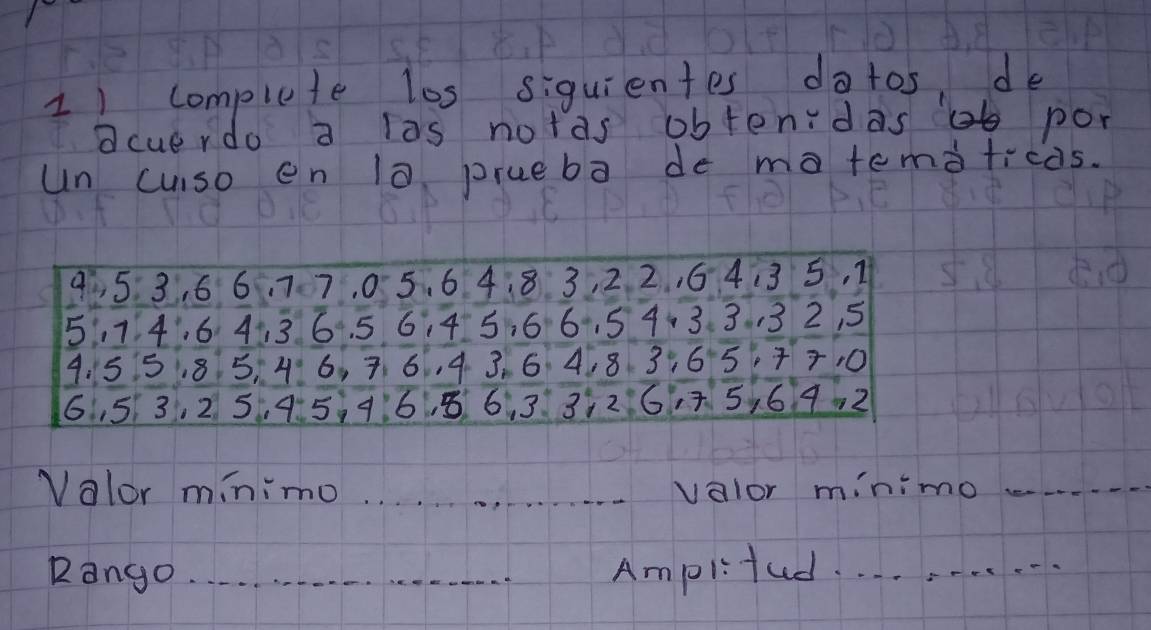 1) complete los siguientes datos, de
acuerdo a las notas obtenidas por
un curso en la prueba de matemáticas.
4,5 3,6 6,7 7,0 5,6 4,8 3,2 2,6 4,3 5,1
5,1 4,6 4,3 6,5 6,4 5,6 6,5 4,3 3,3 2,5
4,5 5,8 5,4 6,7 6,4 3,6 4,8 3,6 5,7 7,0
6,5 3,2 5,4 5,4 6,5 6,3 3,2 6,7 5,6 4,2
Valor mínimo .............. valor mínimo ---------
Rango..................... Amplitud............